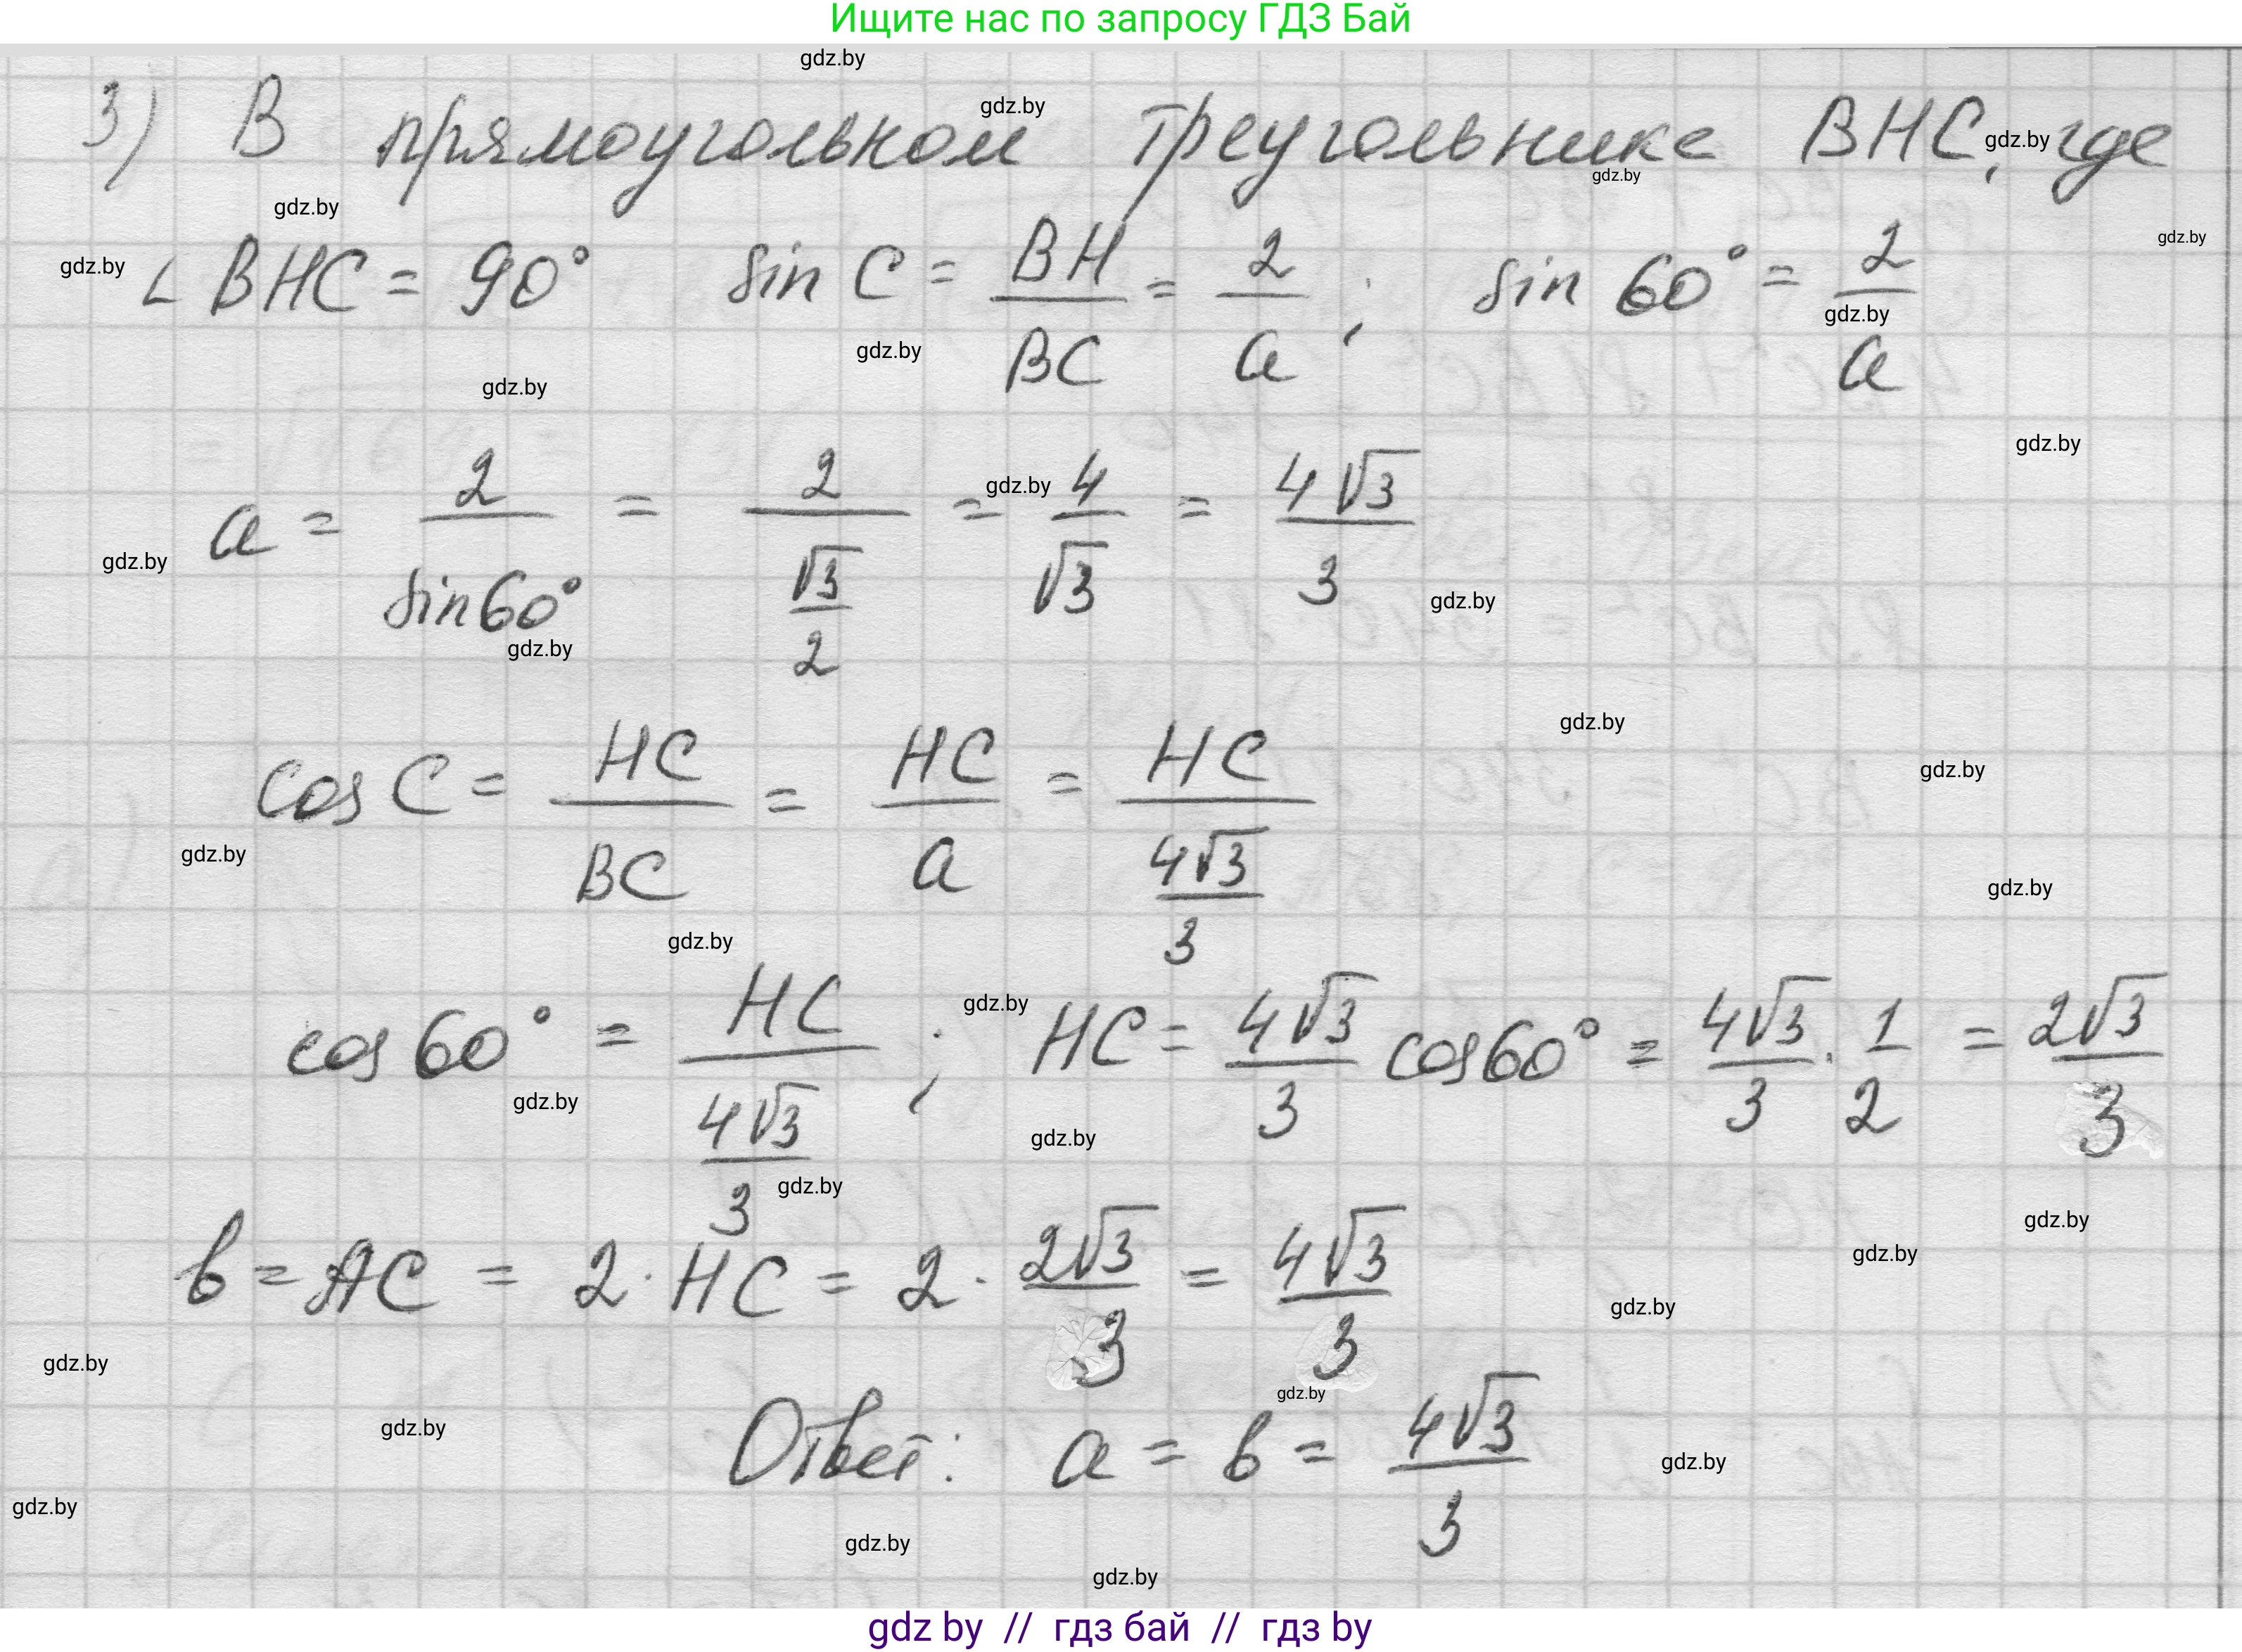 Ищите нас по запросу ГДЗ Бай
3) В прямоугольном треугольнике BHC, где
∠ BHC = 90° sin C = BH/BC = 2/a ; sin 60° = 2/a
a = 2/sin60° = 2/(√3/2) = 4/√3 = 4√3/3
cos C = HC/BC = HC/a = HC/(4√3/3)
cos 60° = HC/(4√3/3) ; HC = 4√3/3 cos60° = 4√3/3 · 1/2 = 2√3/3
b = AC = 2 · HC = 2 · 2√3/3 = 4√3/3
Ответ: a = b = 4√3/3
gdz by // гдз бай // гдз by